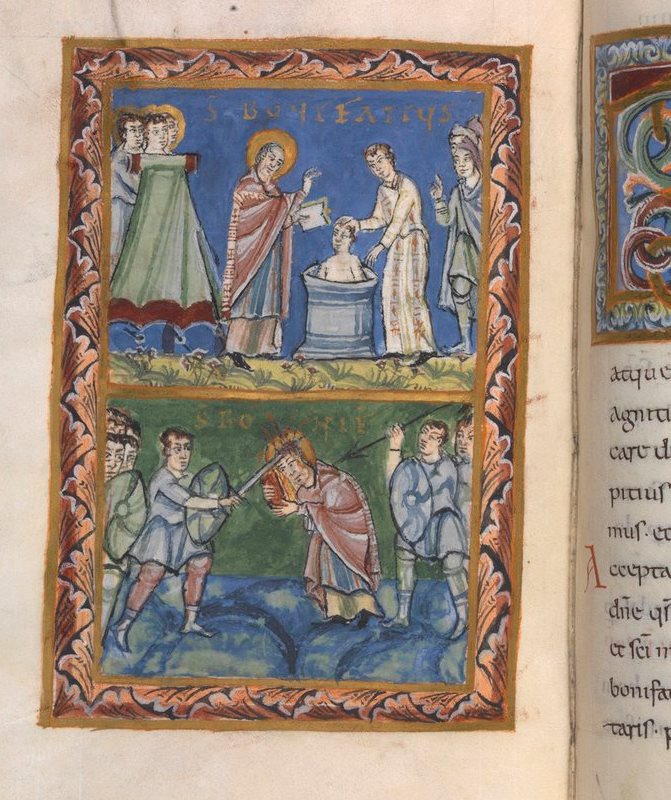 S BONIFATIUS
atque
agniti
care d
pitius
mus. et
Accepta
dne qs
et sci m
bonifa
taris. p